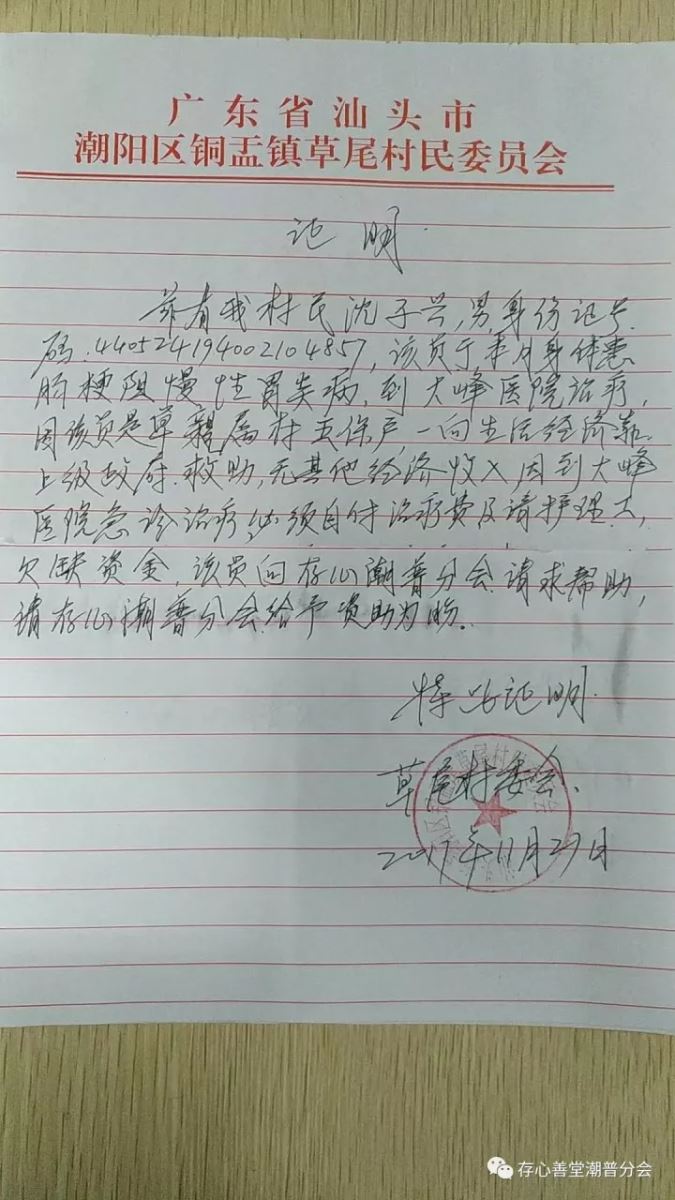 广东省汕头市
潮阳区铜盂镇草尾村民委员会
证明.
兹有我村民沈子兴,男身份证号
码:440524194002104857,该员于本月身体患
肠梗阻慢性胃炎病,到大峰医院治疗,
因该员是草籍属村五保户,一向生活经济靠
上级政府.救助,无其他经济收入,因到大峰
医院急诊治疗,必须自付治疗费及请护理工,
欠缺资金,该员向存心潮普分会.请求帮助,
请存心潮普分会.给予资助为盼.
特此证明.
草尾村委会.
2017年11月29日
存心善堂潮普分会